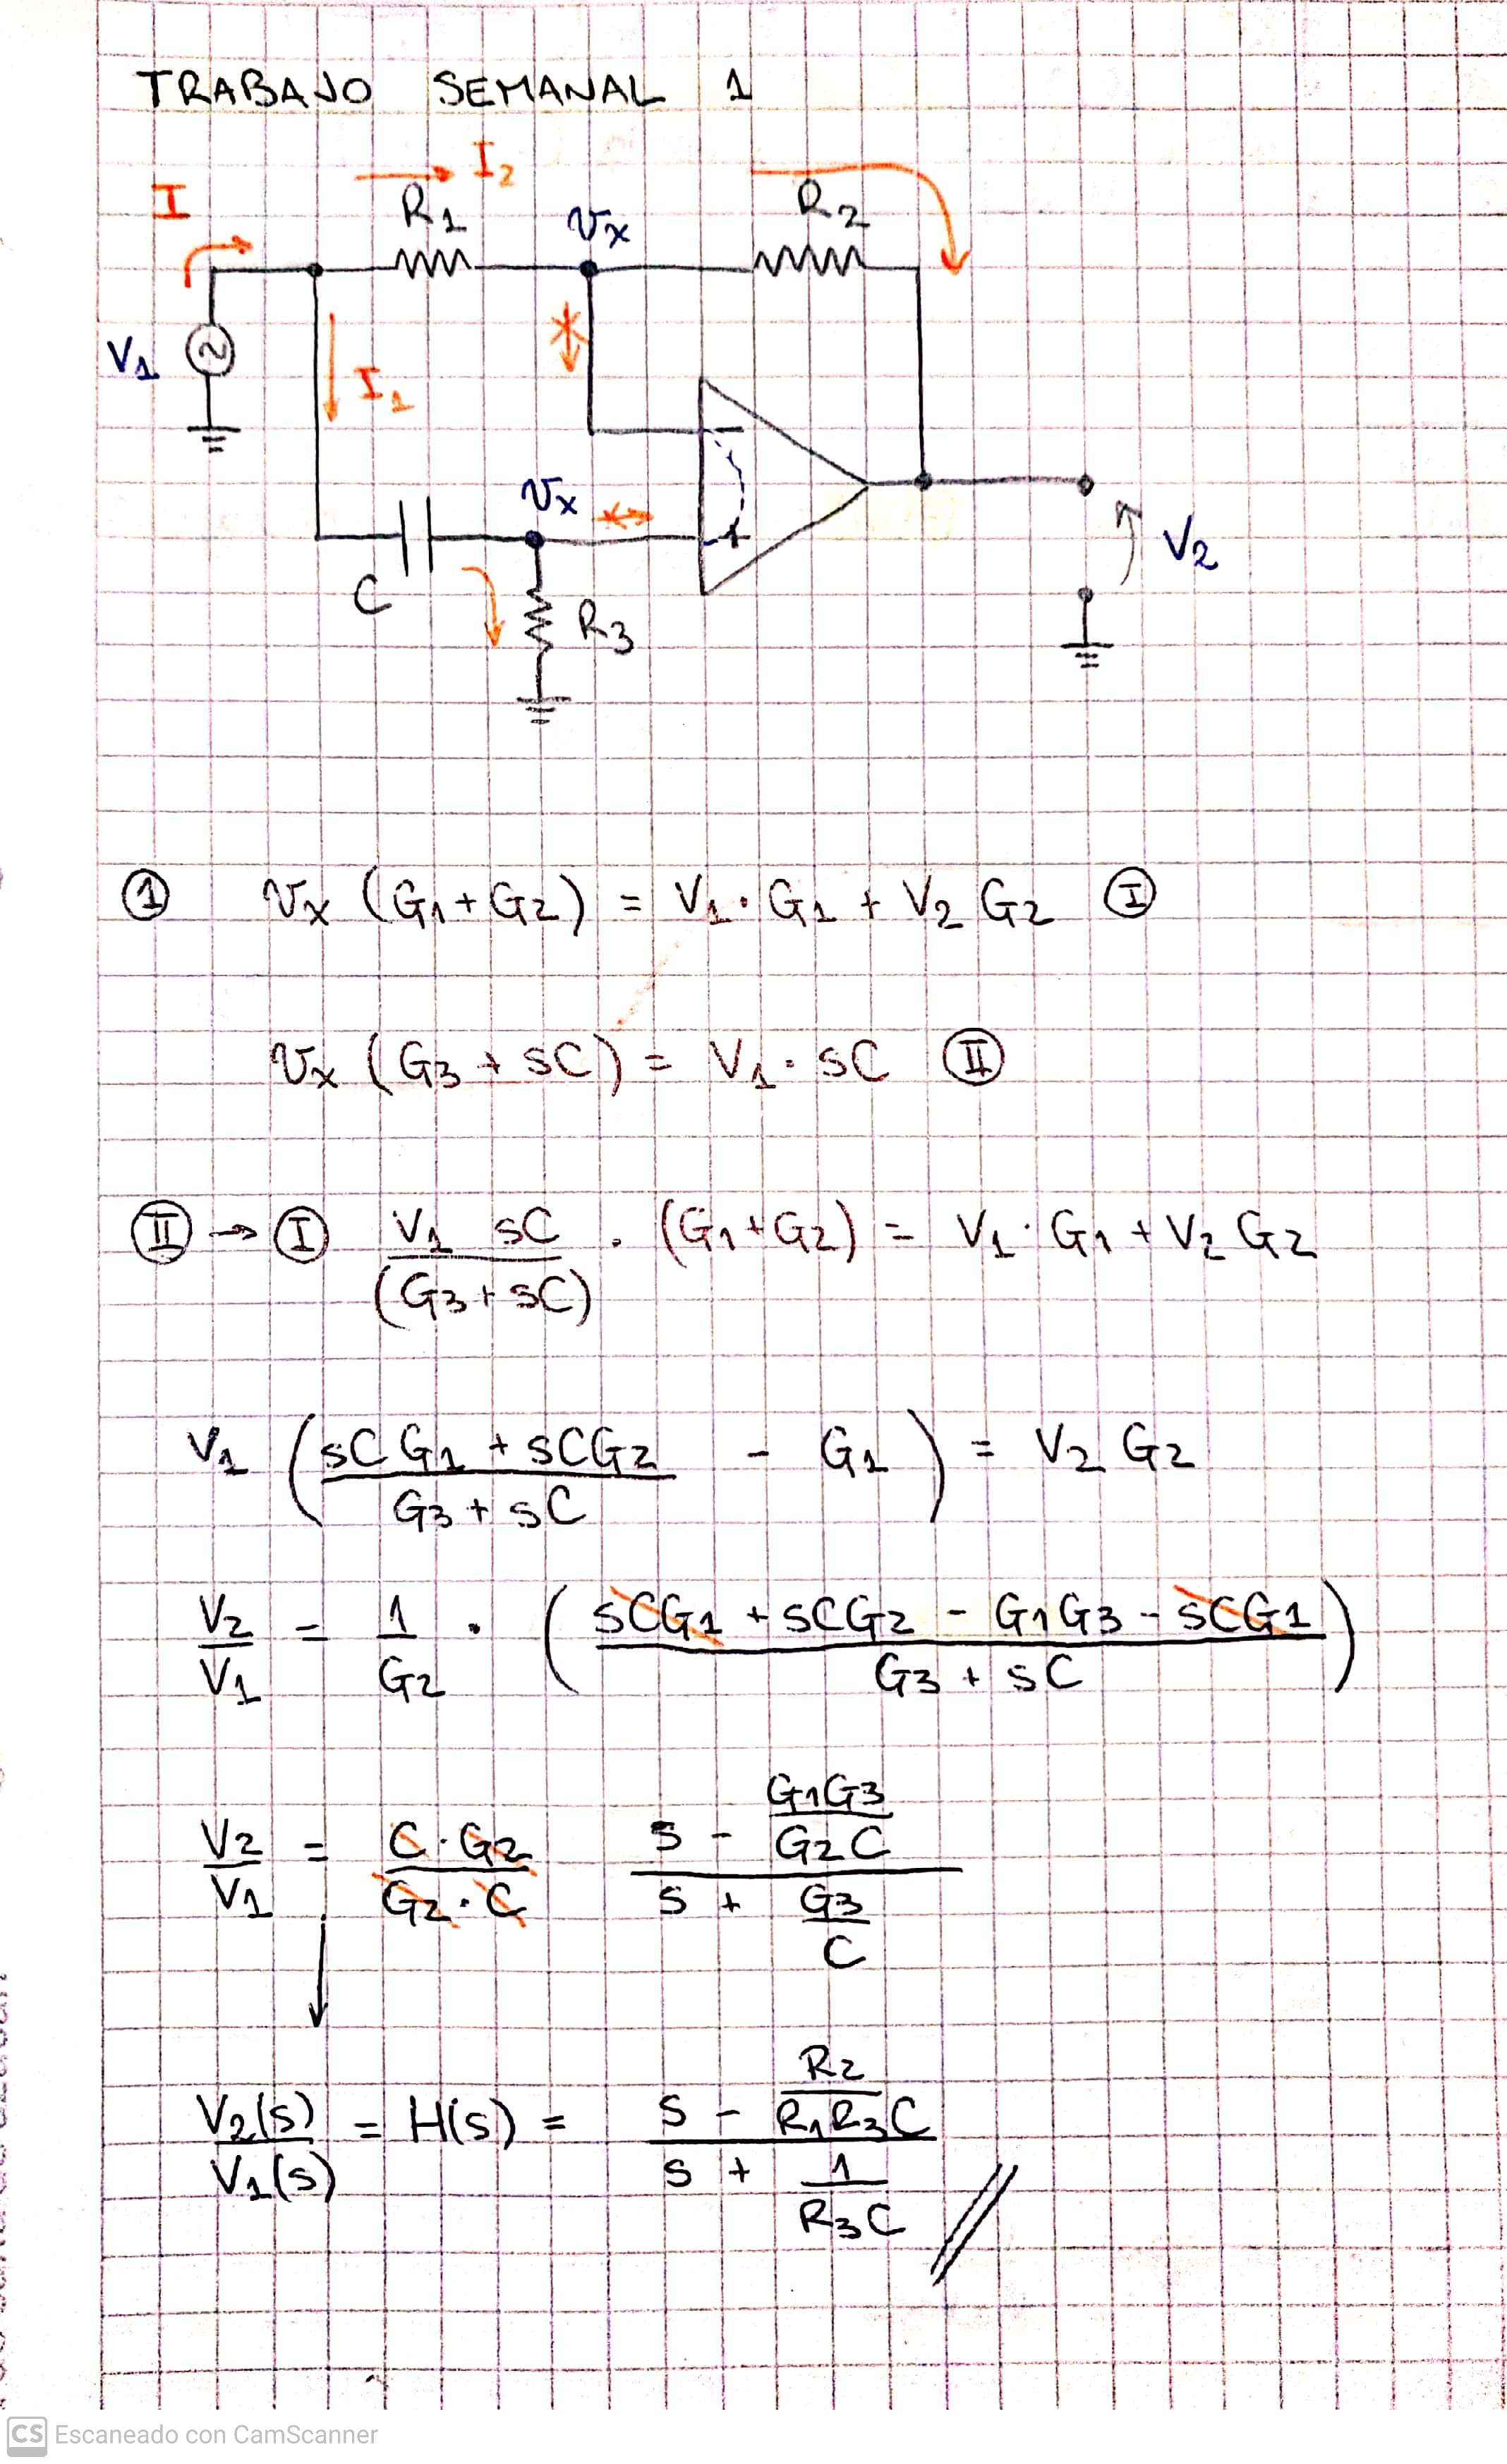 TRABAJO SEMANAL 1
I
I2
R1
Vx
R2
V1
I1
-
Vx
+
V2
C
R3
① Vx (G1 + G2) = V1 · G1 + V2 G2 Ⓘ
Vx (G3 + SC) = V1 · SC Ⓘⓘ
Ⓘⓘ → Ⓘ V1 SC / (G3 + SC) · (G1 + G2) = V1 · G1 + V2 G2
V1 ( (SC G1 + SC G2) / (G3 + SC) - G1 ) = V2 G2
V2 / V1 = 1 / G2 · ( (SCG1 + SCG2 - G1G3 - SCG1) / (G3 + SC) )
V2 / V1 = (C · G2) / (G2 · C) (S - G1G3 / G2C) / (S + G3 / C)
V2(S) / V1(S) = H(S) = (S - R2 / R1R3C) / (S + 1 / R3C)
CS Escaneado con CamScanner